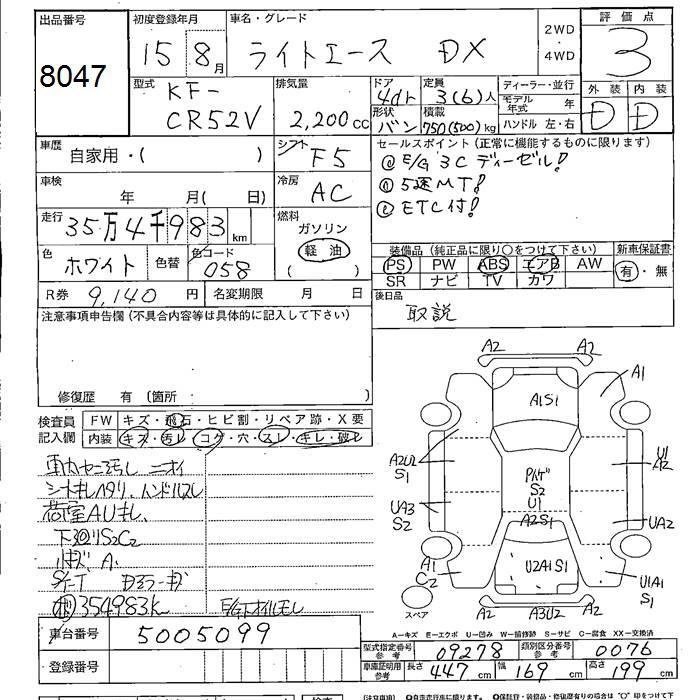 出品番号 8047
初度登録年月 15年 8月
車名・グレード ライトエース DX
2WD・4WD
評価点 3
外装 D 内装 D
型式 KF-CR52V
排気量 2,200cc
ドア 4dr
形状 バン
定員 3(6)人
積載 750(500)kg
ディーラー・並行
モデル年式 年
ハンドル 左・右
車歴 自家用・( )
シフト F5
車検 年 月( 日)
冷房 AC
走行 35万4千983km
燃料 ガソリン 軽油 ( )
色 ホワイト 色替 色コード 058
R券 9,140円 名変期限 月 日
セールスポイント(正常に機能するものに限ります)
① E/G 3C ディーゼル!
① 5速MT!
② ETC付!
装備品(純正品に限り○をつけて下さい) 新車保証書
PS PW ABS エアB AW 有・無
SR ナビ TV カワ
後日品
取説
注意事項申告欄(不具合内容等は具体的に記入して下さい)
修復歴 有(箇所 )
検査員記入欄 FW キズ・飛石・ヒビ割・リペア跡・X要
内装 キズ・汚レ・コゲ・穴・スレ・キレ・破レ
車内 汚し ニオイ
シートキレ ヘタリ、ハンドルスレ
荷室AUキレ、
下廻リS2C2
354983k
車台番号 5005099
登録番号
A2 A2
A1
A1S1
A2U2 S1
U1 A2
Pルーゲ S2 U1
UA3 S2
UA2
A2S1
A1 C2
U2A1S1
U1A1 S1
スペア
A2 A3U2 A2
A-キズ E-エクボ U-凹み W-補修跡 S-サビ C-腐食 XX-交換済
型式指定番号 参考 09278 類別区分番号 参考 0076
車庫証明用 参考 長さ 447cm 幅 169cm 高さ 199cm